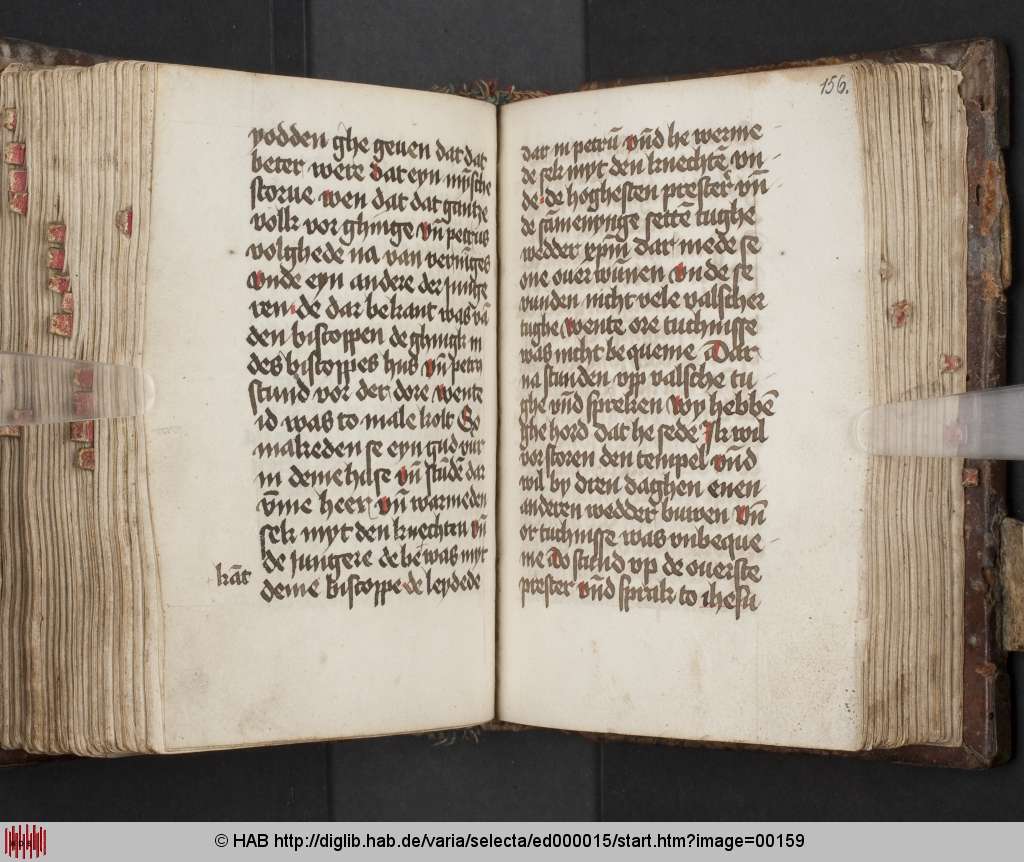 yodden ghe geuen dat dat
beter were dat eyn mȳsche
storue wen dat dat gantze
volk vor ghinge vn̄ petrus
volghede na van verniges
vnde eyn andere der junge
ren · de dar bekant was vā
den biscoppen de ghingk in
des biscoppes hus vn̄ petrꝰ
stund vor der dore wente
id was to male kolt So
makeden se eyn gud vur
in deme huse vn̄ stūdē dar
v̄me heer vn̄ warmeden
sek myt den knechten vn̄
de jungere de be was myt
- kāt
deme biscoppe · de leydede
156.
dar in petrū vn̄d he werme
de sek myt den knechtē vn̄
de · de hoghesten prester vn̄
de sāmenynge settē tughe
wedder xp̄m dar mede se
one ouer wūnen vnde se
vunden nicht vele valscher
tughe wente ore tuchnisse
was nicht bequeme Dar
na stunden vp valsche tu
ghe vn̄d spreken wy hebbē
ghe hord dat he sede Ik wil
vor storen den tempel vn̄d
wil by dren daghen enen
anderen wedder buwen vn̄
or tuchnisse was vnbeque
me do stund vp de ouerste
prester vn̄d sprak to ihesu
© HAB http://diglib.hab.de/varia/selecta/ed000015/start.htm?image=00159